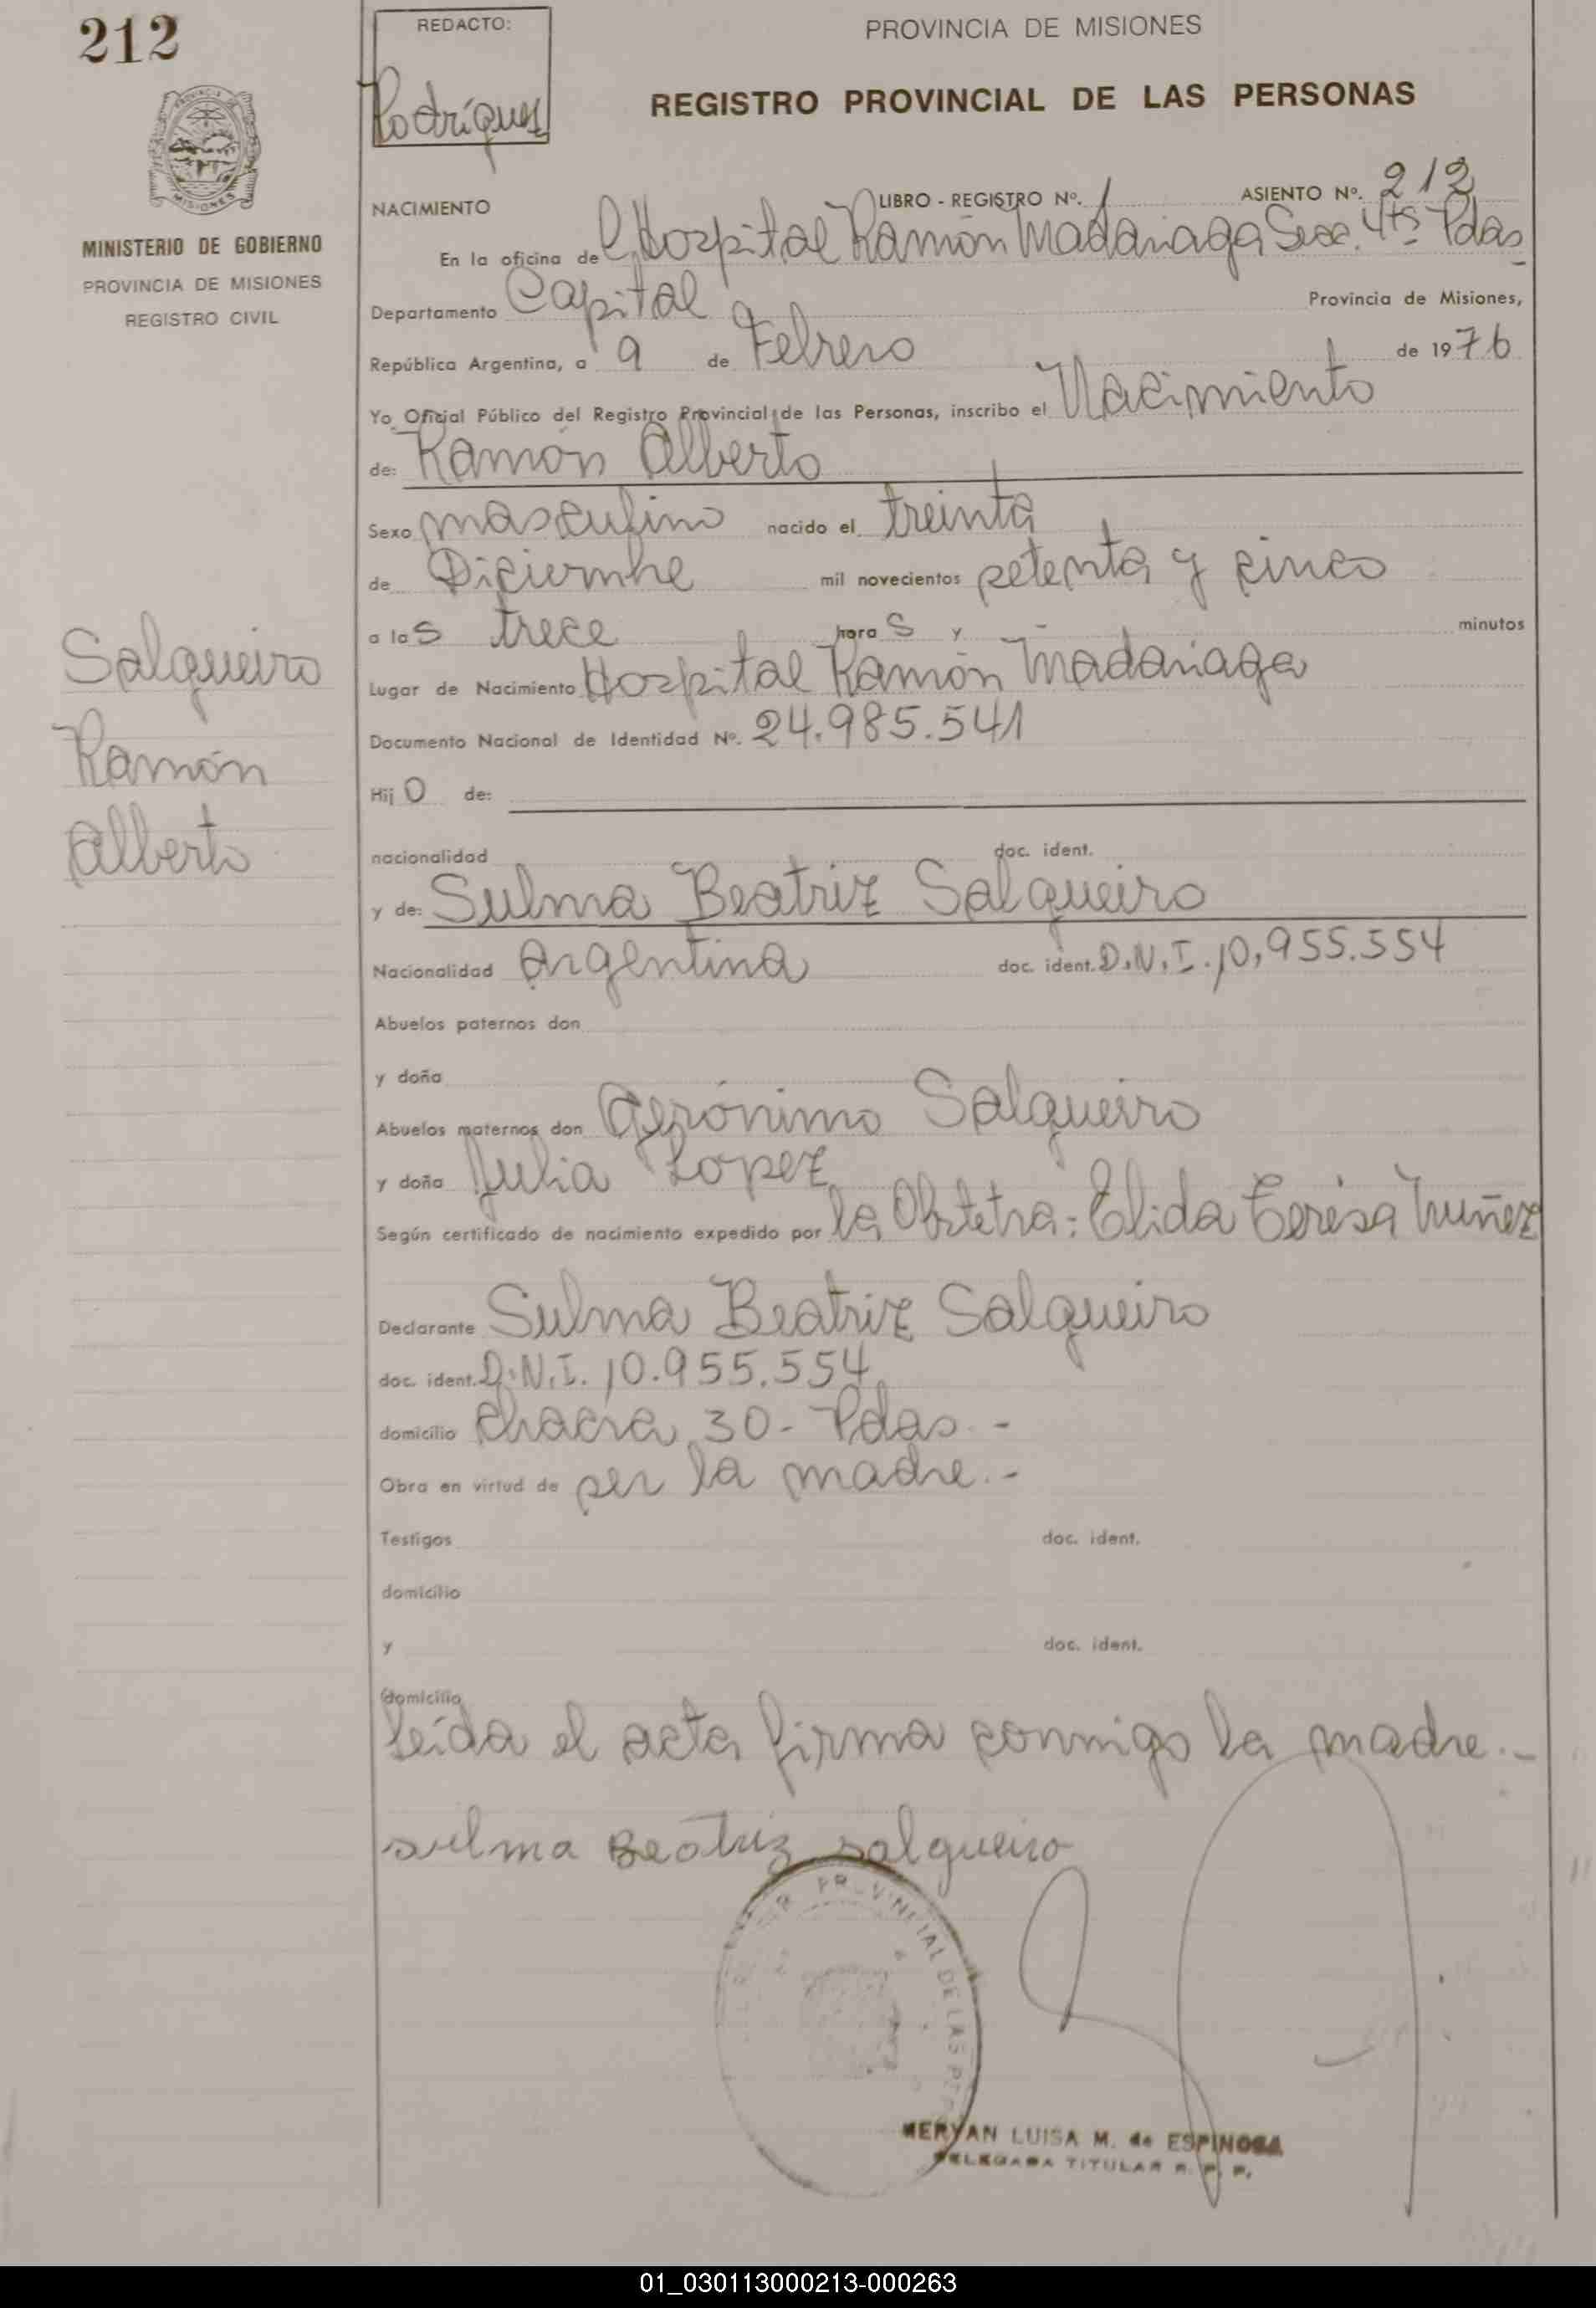 212
REDACTO:
Rodríguez
PROVINCIA DE MISIONES
REGISTRO PROVINCIAL DE LAS PERSONAS
MISIONES
MINISTERIO DE GOBIERNO
PROVINCIA DE MISIONES
REGISTRO CIVIL
NACIMIENTO LIBRO - REGISTRO Nº. 1 ASIENTO Nº. 212
En la oficina de Hospital Ramón Madariaga Secc. 4ta Pdas
Departamento Capital Provincia de Misiones,
República Argentina, a 9 de Febrero de 1976
Yo Oficial Público del Registro Provincial de las Personas, inscribo el Nacimiento
de: Ramón Alberto
Sexo masculino nacido el treinta
de Diciembre mil novecientos setenta y cinco
a las trece horas y - minutos
Lugar de Nacimiento Hospital Ramón Madariaga
Documento Nacional de Identidad Nº. 24.985.541
Hijo de:
nacionalidad doc. ident.
y de: Sulma Beatriz Salgueiro
Nacionalidad Argentina doc. ident. D.N.I. 10,955.554
Abuelos paternos don
y doña
Abuelos maternos don Gerónimo Salgueiro
y doña Julia Lopez
Según certificado de nacimiento expedido por la Obstetra: Elida Teresa Nuñez
Declarante Sulma Beatriz Salgueiro
doc. ident. D.N.I. 10.955.554
domicilio chacra 30- Pdas.-
Obra en virtud de ser la madre.-
Testigos doc. ident.
domicilio
y doc. ident.
domicilio
leída el acta firma conmigo la madre.-
Sulma Beatriz Salgueiro
Salgueiro
Ramón
Alberto
PROVINCIAL DE LAS PER
MERYAN LUISA M. de ESPINOSA
DELEGADA TITULAR R. P. P.
01_030113000213-000263